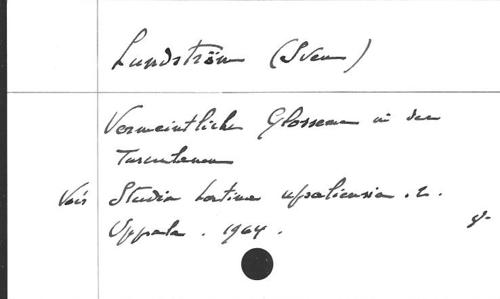 Lundström (Sven)
Vermeintliche Glosseme in den
Tusculanen
Voir Studia Latina Upsaliensia . 2.
Uppsala . 1964 .